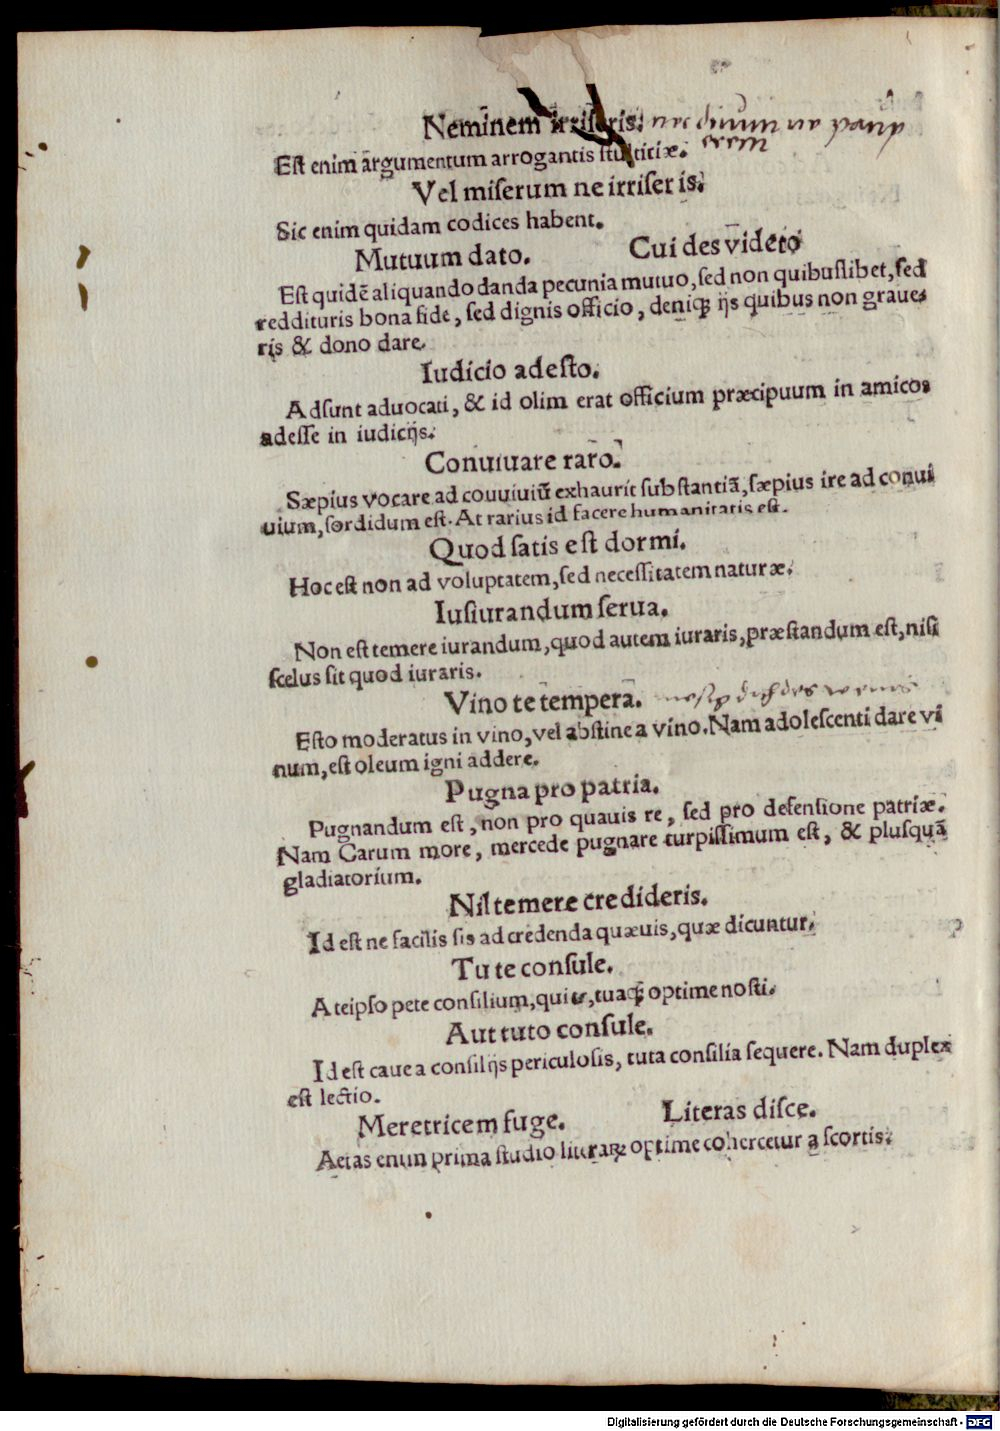 Neminem irriseris. nec diuum ne paup
erem
Est enim argumentum arrogantis stultitiæ.
Vel miserum ne irriseris.
Sic enim quidam codices habent.
Mutuum dato. Cui des videto
Est quidē aliquando danda pecunia mutuo, sed non quibuslibet, sed
reddituris bona fide, sed dignis officio, deniqꝫ ijs quibus non graue-
ris & dono dare.
Iudicio adesto.
Adsunt aduocati, & id olim erat officium præcipuum in amicos
adesse in iudicijs.
Conuiuare raro.
Sæpius vocare ad couuiuiū exhaurit substantiā, sæpius ire ad conui
uium, sordidum est. At rarius id facere humanitatis est.
Quod satis est dormi.
Hoc est non ad voluptatem, sed necessitatem naturæ.
Iusiurandum serua.
Non est temere iurandum, quod autem iuraris, præstandum est, nisi
scelus sit quod iuraris.
Vino te tempera.
Esto moderatus in vino, vel abstine a vino. Nam adolescenti dare vi
num, est oleum igni addere.
Pugna pro patria.
Pugnandum est, non pro quauis re, sed pro defensione patriæ.
Nam Carum more, mercede pugnare turpissimum est, & plusquā
gladiatorium.
Nil temere credideris.
Id est ne facilis sis ad credenda quæuis, quæ dicuntur.
Tu te consule.
A teipso pete consilium, qui te, tuaqꝫ optime nosti.
Aut tuto consule.
Id est caue a consilijs periculosis, tuta consilia sequere. Nam duplex
est lectio.
Meretricem fuge. Literas disce.
Aetas enim prima studio literaꝝ optime cohercetur a scortis.
Digitalisierung gefördert durch die Deutsche Forschungsgemeinschaft - DFG